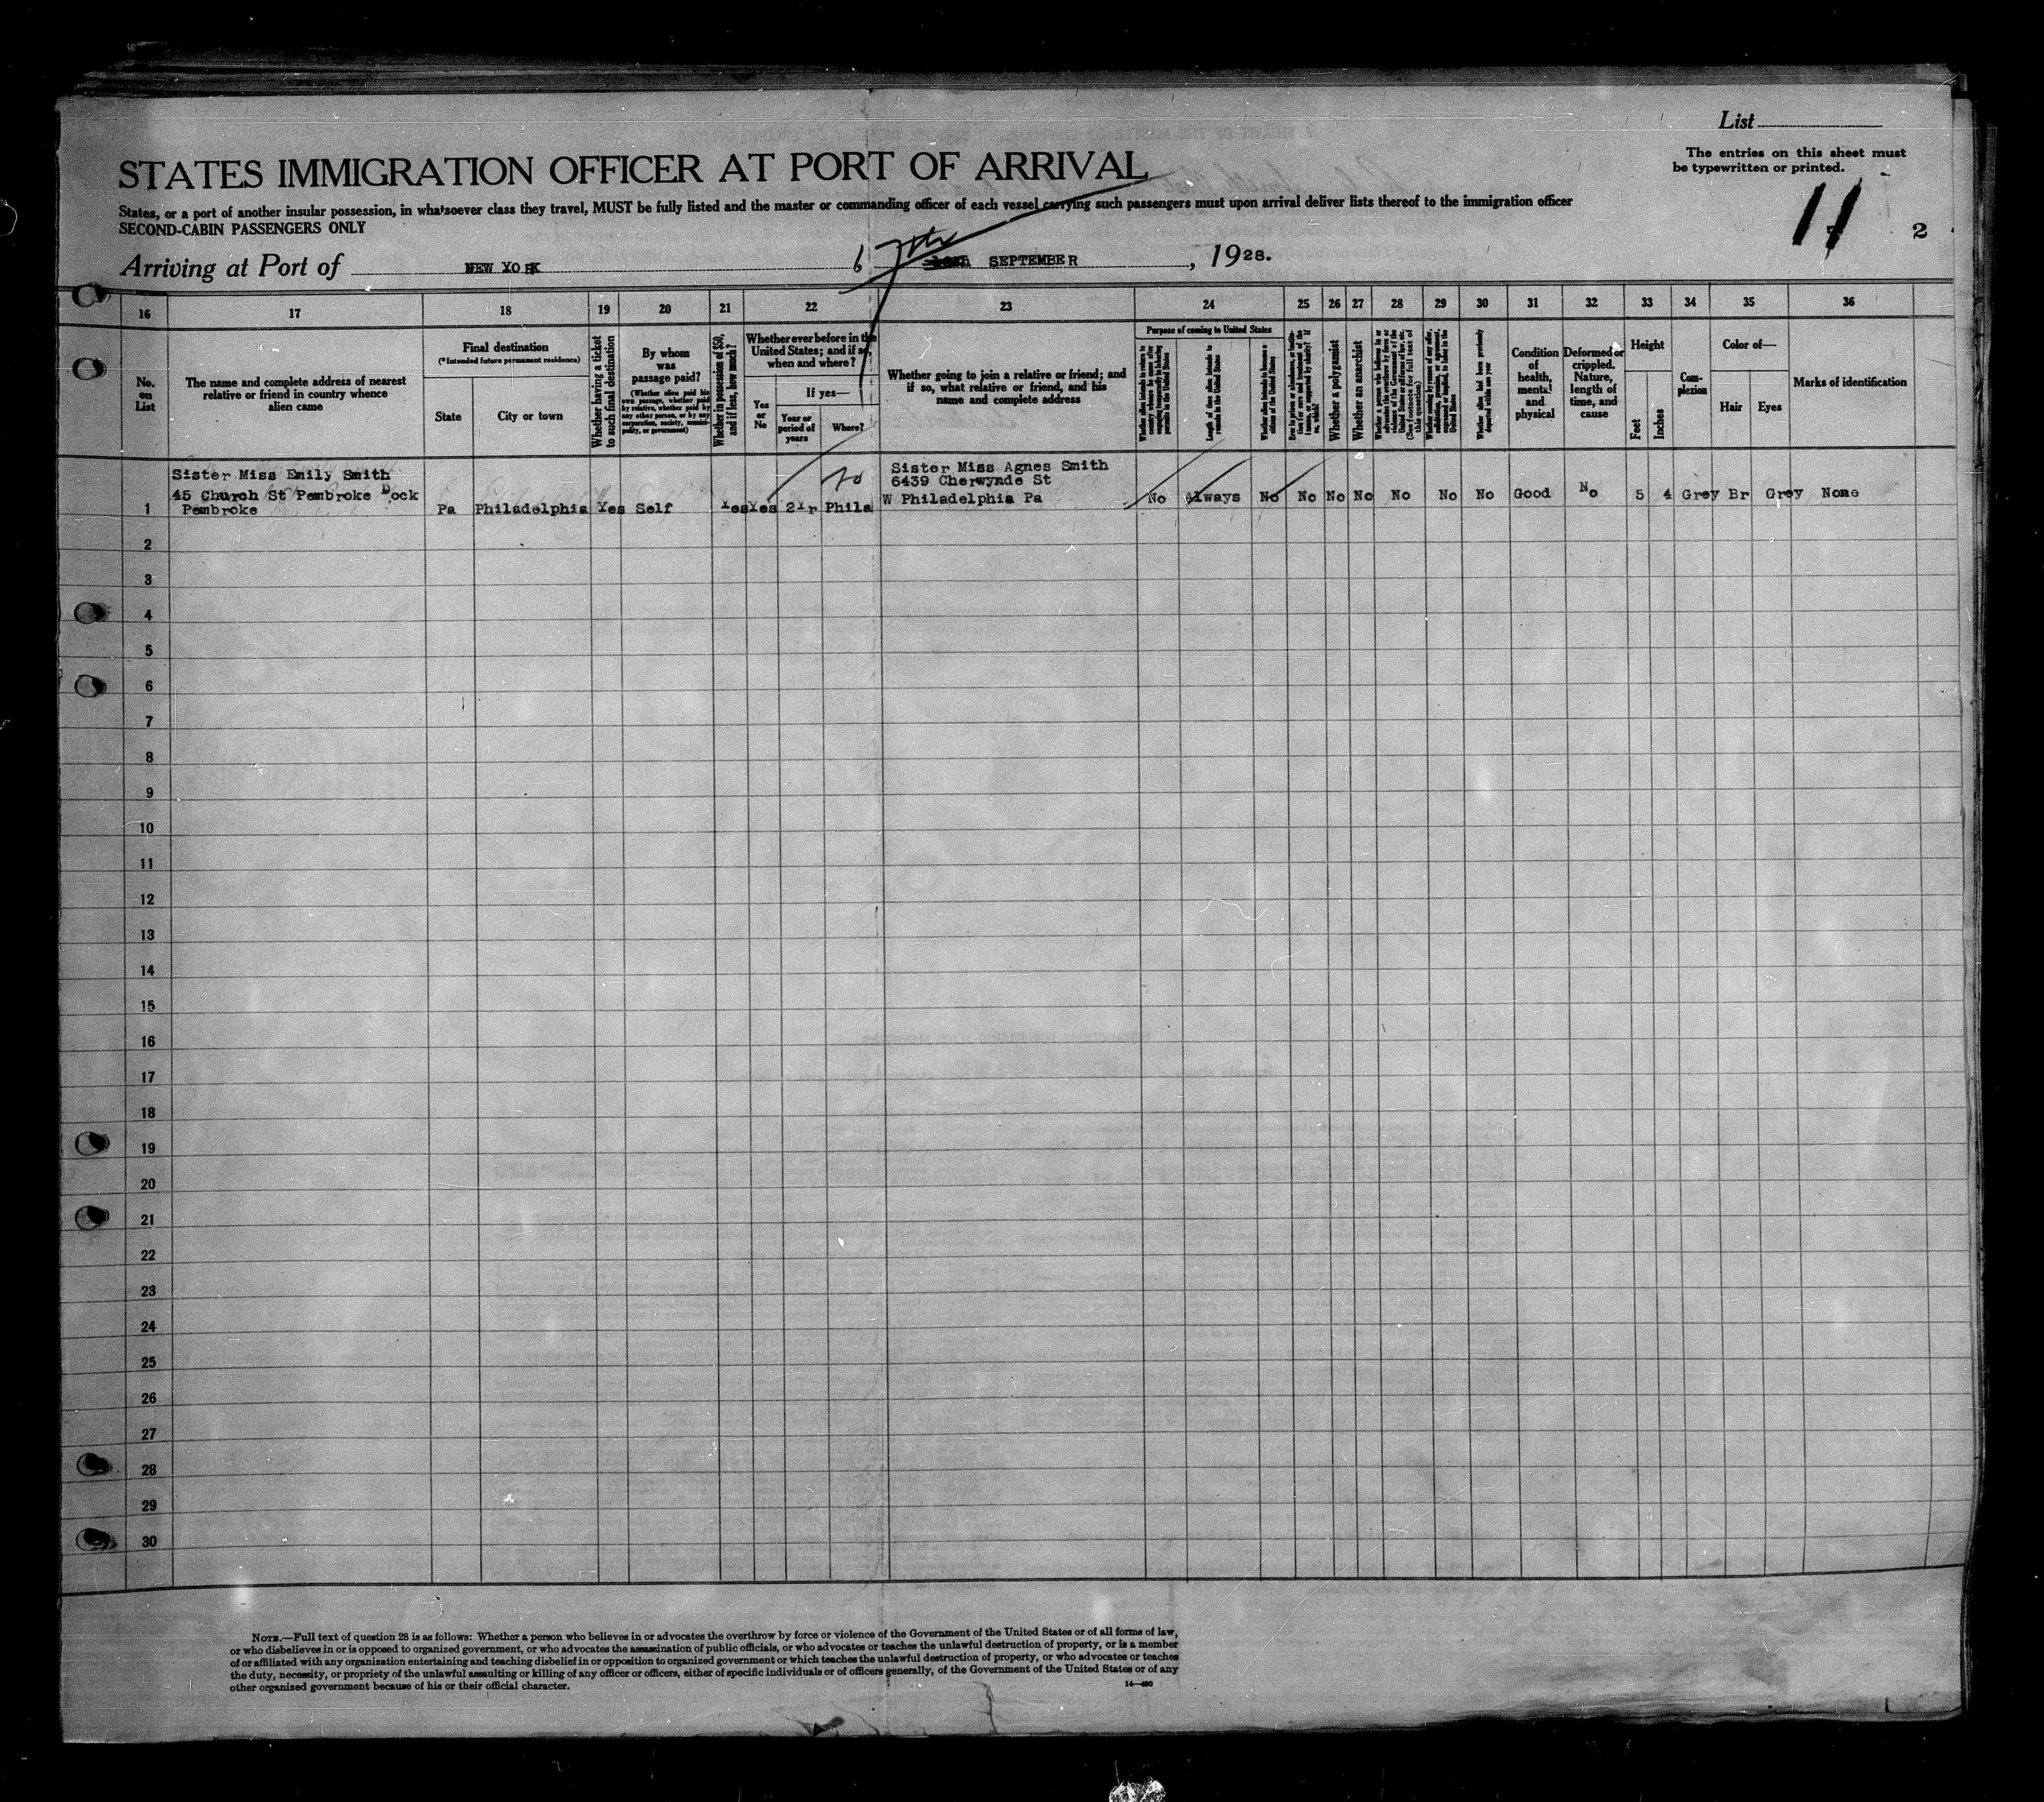 List
The entries on this sheet must
be typewritten or printed.
STATES IMMIGRATION OFFICER AT PORT OF ARRIVAL
States, or a port of another insular possession, in whatsoever class they travel, MUST be fully listed and the master or commanding officer of each vessel carrying such passengers must upon arrival deliver lists thereof to the immigration officer
SECOND-CABIN PASSENGERS ONLY
11 2
Arriving at Port of NEW YORK 7th SEPTEMBER, 1928.
16 17 18 19 20 21 22 23 24 25 26 27 28 29 30 31 32 33 34 35 36
No.
on
List
The name and complete address of nearest
relative or friend in country whence
alien came
Final destination
(*Intended future permanent residence)
State
City or town
Whether having a ticket
to such final destination
By whom
was
passage paid?
(Whether alien paid his
own passage, whether paid
by relative, whether paid by
any other person, or by any
corporation, society, munici-
pality, or government)
Whether in possession of $50,
and if less, how much?
Whether ever before in the
United States; and if so,
when and where?
Yes
or
No
If yes—
Year or
period of
years
Where?
Whether going to join a relative or friend; and
if so, what relative or friend, and his
name and complete address
Purpose of coming to United States
Length of time alien intends to
remain in the United States
Whether alien intends to become a
citizen of the United States
Whether a polygamist
Whether an anarchist
Whether alien had been previously
deported within one year
Condition
of
health,
mental
and
physical
Deformed or
crippled.
Nature,
length of
time, and
cause
Height
Feet
Inches
Com-
plexion
Color of—
Hair
Eyes
Marks of identification
Sister Miss Emily Smith
45 Church St Pembroke Dock
Pembroke
1 Pa Philadelphia Yes Self Yes Yes 2Yr Phila
No
Sister Miss Agnes Smith
6439 Cherwynde St
W Philadelphia Pa
No Always No No No No No No No Good No 5 4 Grey Br Grey None
2
3
4
5
6
7
8
9
10
11
12
13
14
15
16
17
18
19
20
21
22
23
24
25
26
27
28
29
30
NOTE.—Full text of question 28 is as follows: Whether a person who believes in or advocates the overthrow by force or violence of the Government of the United States or of all forms of law,
or who disbelieves in or is opposed to organized government, or who advocates the assassination of public officials, or who advocates or teaches the unlawful destruction of property, or is a member
of or affiliated with any organization entertaining and teaching disbelief in or opposition to organized government or which teaches the unlawful destruction of property, or who advocates or teaches
the duty, necessity, or propriety of the unlawful assaulting or killing of any officer or officers, either of specific individuals or of officers generally, of the Government of the United States or of any
other organized government because of his or their official character.
14—490